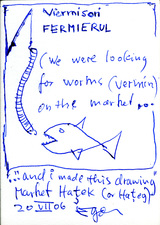 Viermisori
FERMIERUL
(we were looking
for worms (vermin)
on the market ...
..."and i made this drawing"
Market Hațek (or Hațeg)
20 VII 06